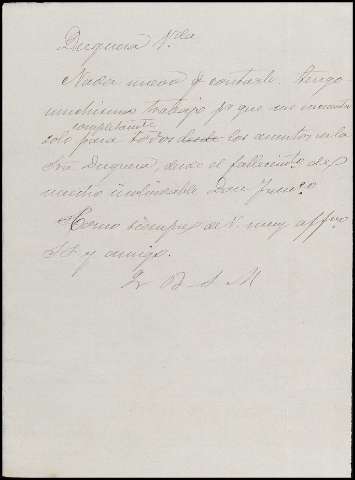 Duquesa Vda
Nada nuevo q contarle. tengo
muchisimo trabajo pr que me encuentro
completamte
solo para todos desde los asuntos en la
Sra Duquesa, desde el fallecimto del
mucho inolvidable Don Franco.
Como siempre de V. muy affmo
SS y amigo.
Q B S M